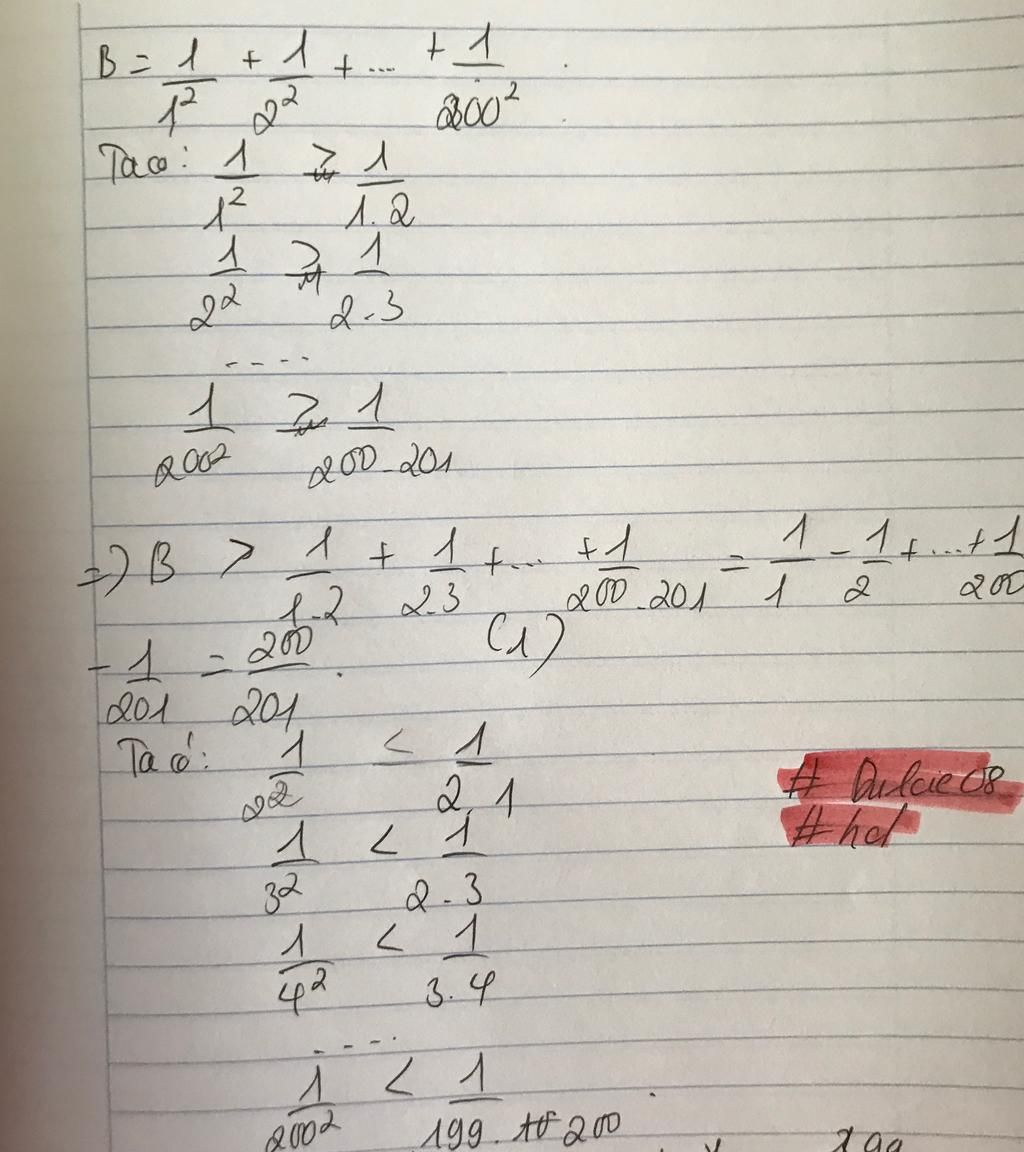 B = 1/1² + 1/2² + ... + 1/200²
Ta có: 1/1² > 1/1.2
1/2² > 1/2.3
....
1/200² > 1/200.201
=) B > 1/1.2 + 1/2.3 + ... + 1/200.201 = 1/1 - 1/2 + ... + 1/200
- 1/201 = 200/201 . (1)
Ta có: 1/2² < 1/2.1
1/3² < 1/2.3
1/4² < 1/3.4
....
1/200² < 1/199.200
# Dulcie08
# hd